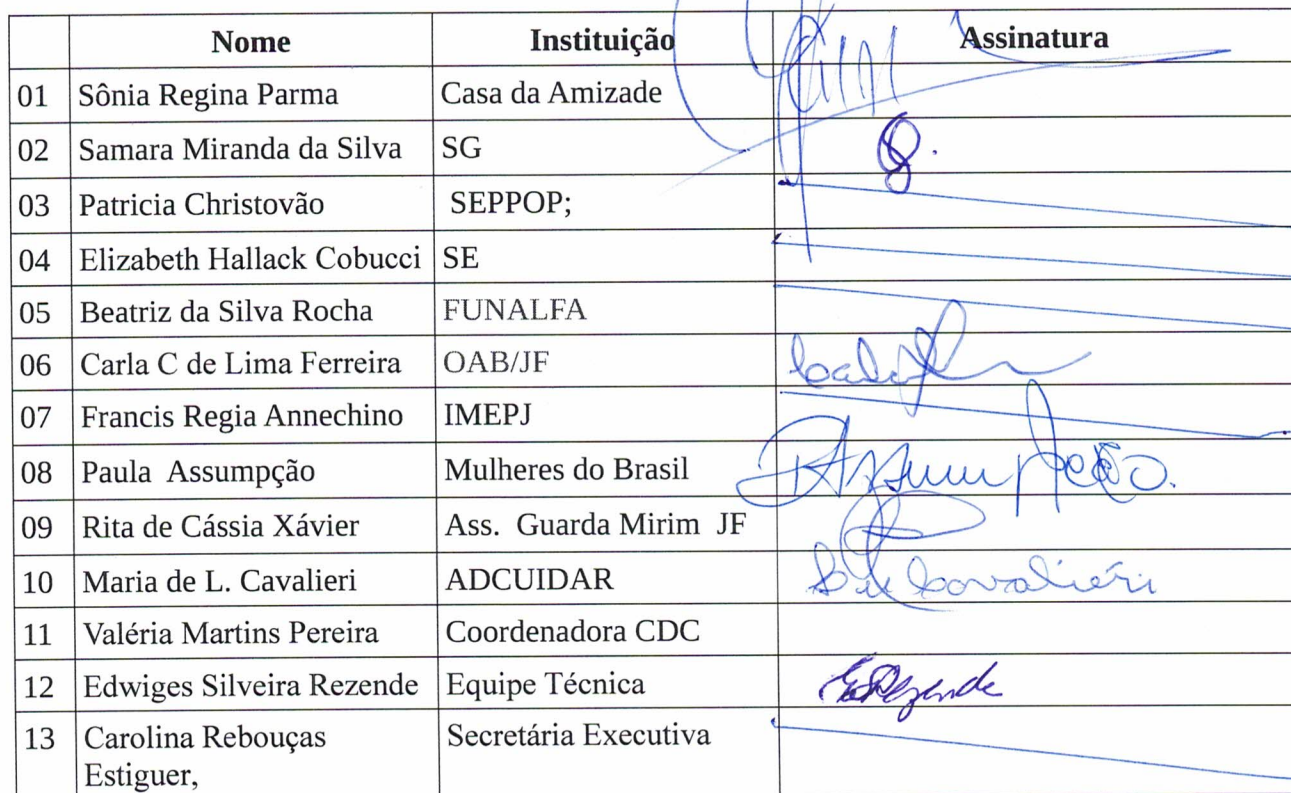 Nome Instituição Assinatura
01 Sônia Regina Parma Casa da Amizade
02 Samara Miranda da Silva SG
03 Patricia Christovão SEPPOP;
04 Elizabeth Hallack Cobucci SE
05 Beatriz da Silva Rocha FUNALFA
06 Carla C de Lima Ferreira OAB/JF
07 Francis Regia Annechino IMEPJ
08 Paula Assumpção Mulheres do Brasil PAssumpção.
09 Rita de Cássia Xávier Ass. Guarda Mirim JF
10 Maria de L. Cavalieri ADCUIDAR Cavaliéri
11 Valéria Martins Pereira Coordenadora CDC
12 Edwiges Silveira Rezende Equipe Técnica Rezende
13 Carolina Rebouças Secretária Executiva
Estiguer,